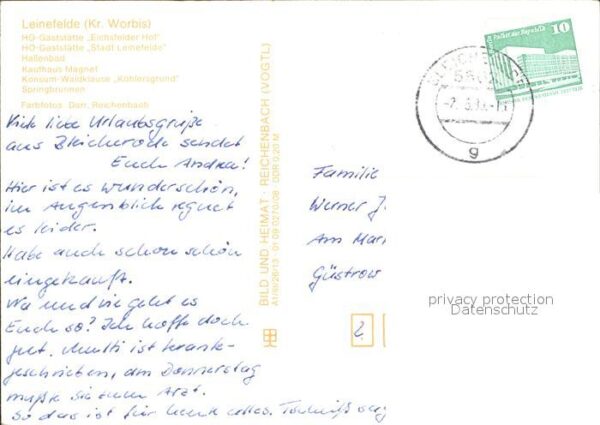 Leinefelde (Kr. Worbis)
HO-Gaststätte „Eichsfelder Hof"
HO-Gaststätte „Stadt Leinefelde"
Hallenbad
Kaufhaus Magnet
Konsum-Waldklause „Köhlersgrund"
Springbrunnen
Farbfotos: Darr, Reichenbach
Viele liebe Urlaubsgrüße
aus Bleicherode sendet
Euch Andrea!
Hier ist es wunderschön,
im Augenblick regnet
es leider.
Habe auch schon schön
eingekauft.
Wo und wie geht es
Euch so? Ich hoffe doch
gut. Mutti ist krank-
geschrieben, am Donnerstag
mußte sie zum Arzt.
So das ist für heute alles. Tschüß sagt
BILD UND HEIMAT · REICHENBACH (VOGTL)
A1/III/26/13 01 09 0270/08 DDR 0,20 M
10
Palast der Republik
BLEICHERODE
g
Familie
Werner J
Am Mar
Güstrow
2
privacy protection
Datenschutz